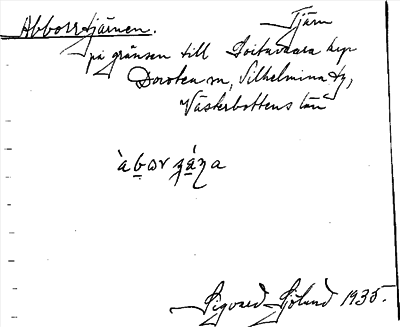 Abborrtjärnen. Tjärn
på gränsen till Boitavaara byp
Dorotea sn, Vilhelmina tg,
Västerbottens län
Sigvard Sjölund 1935.